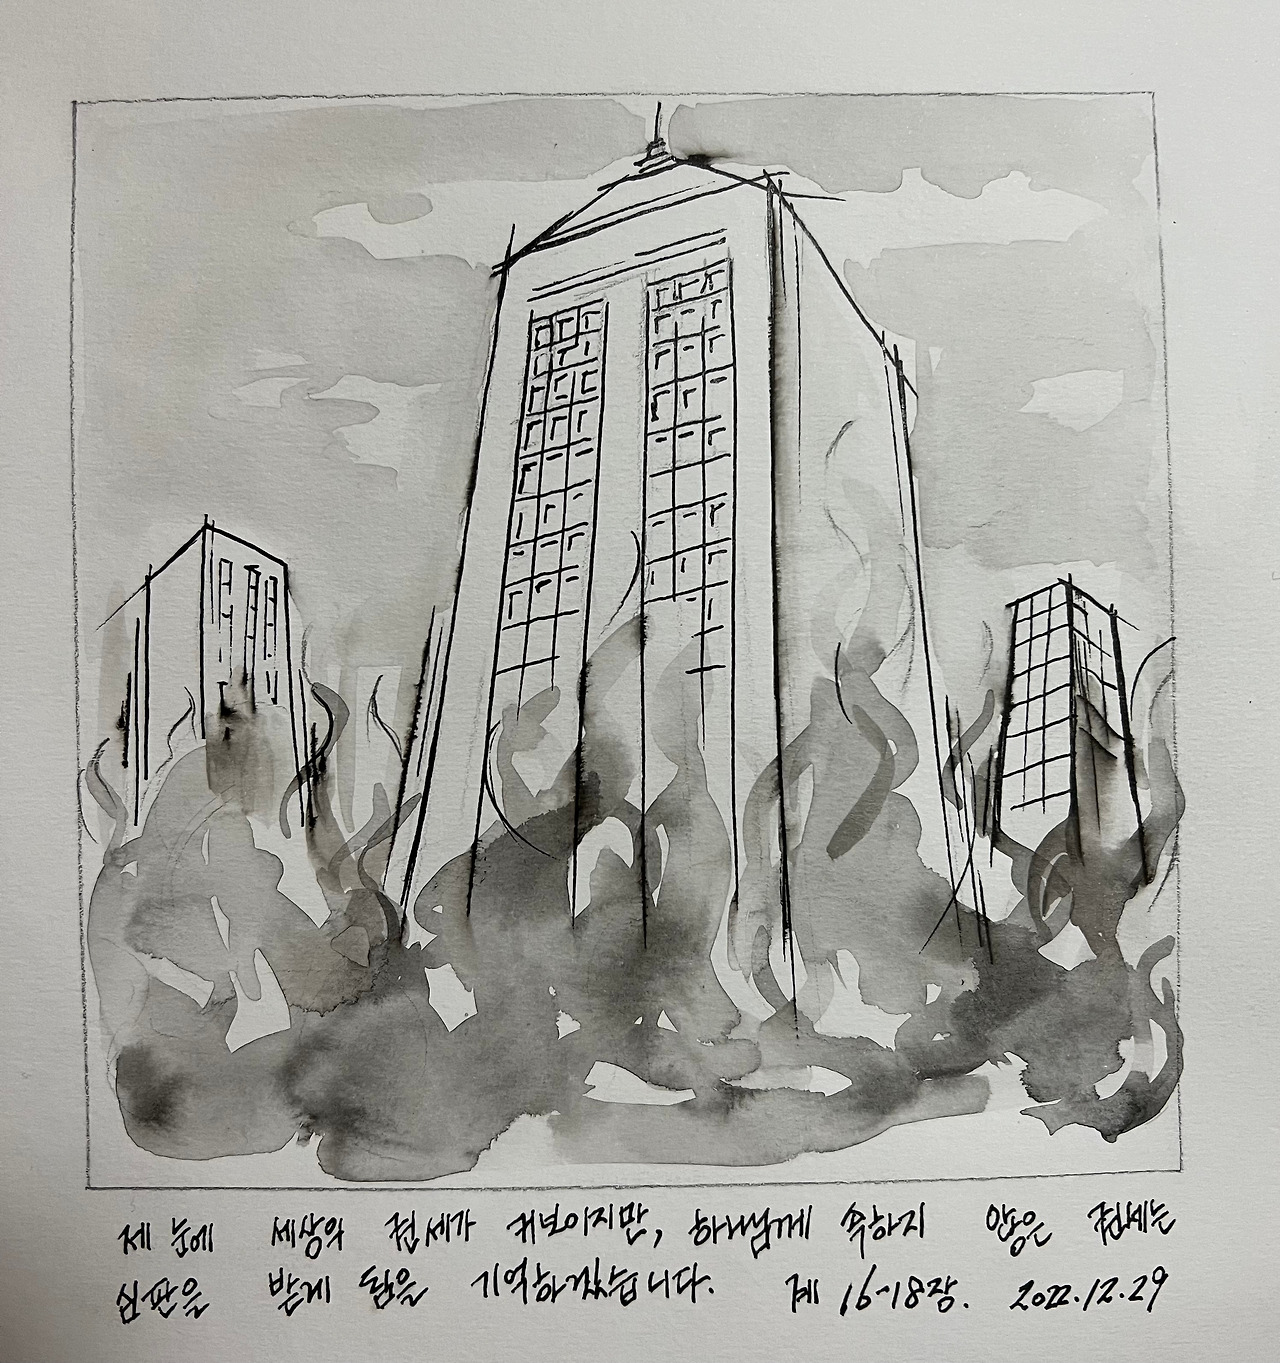 제 눈에 세상의 권세가 커보이지만, 하나님께 속하지 않은 권세는
심판을 받게 됨을 기억하겠습니다. 계 16-18장. 2022.12.29